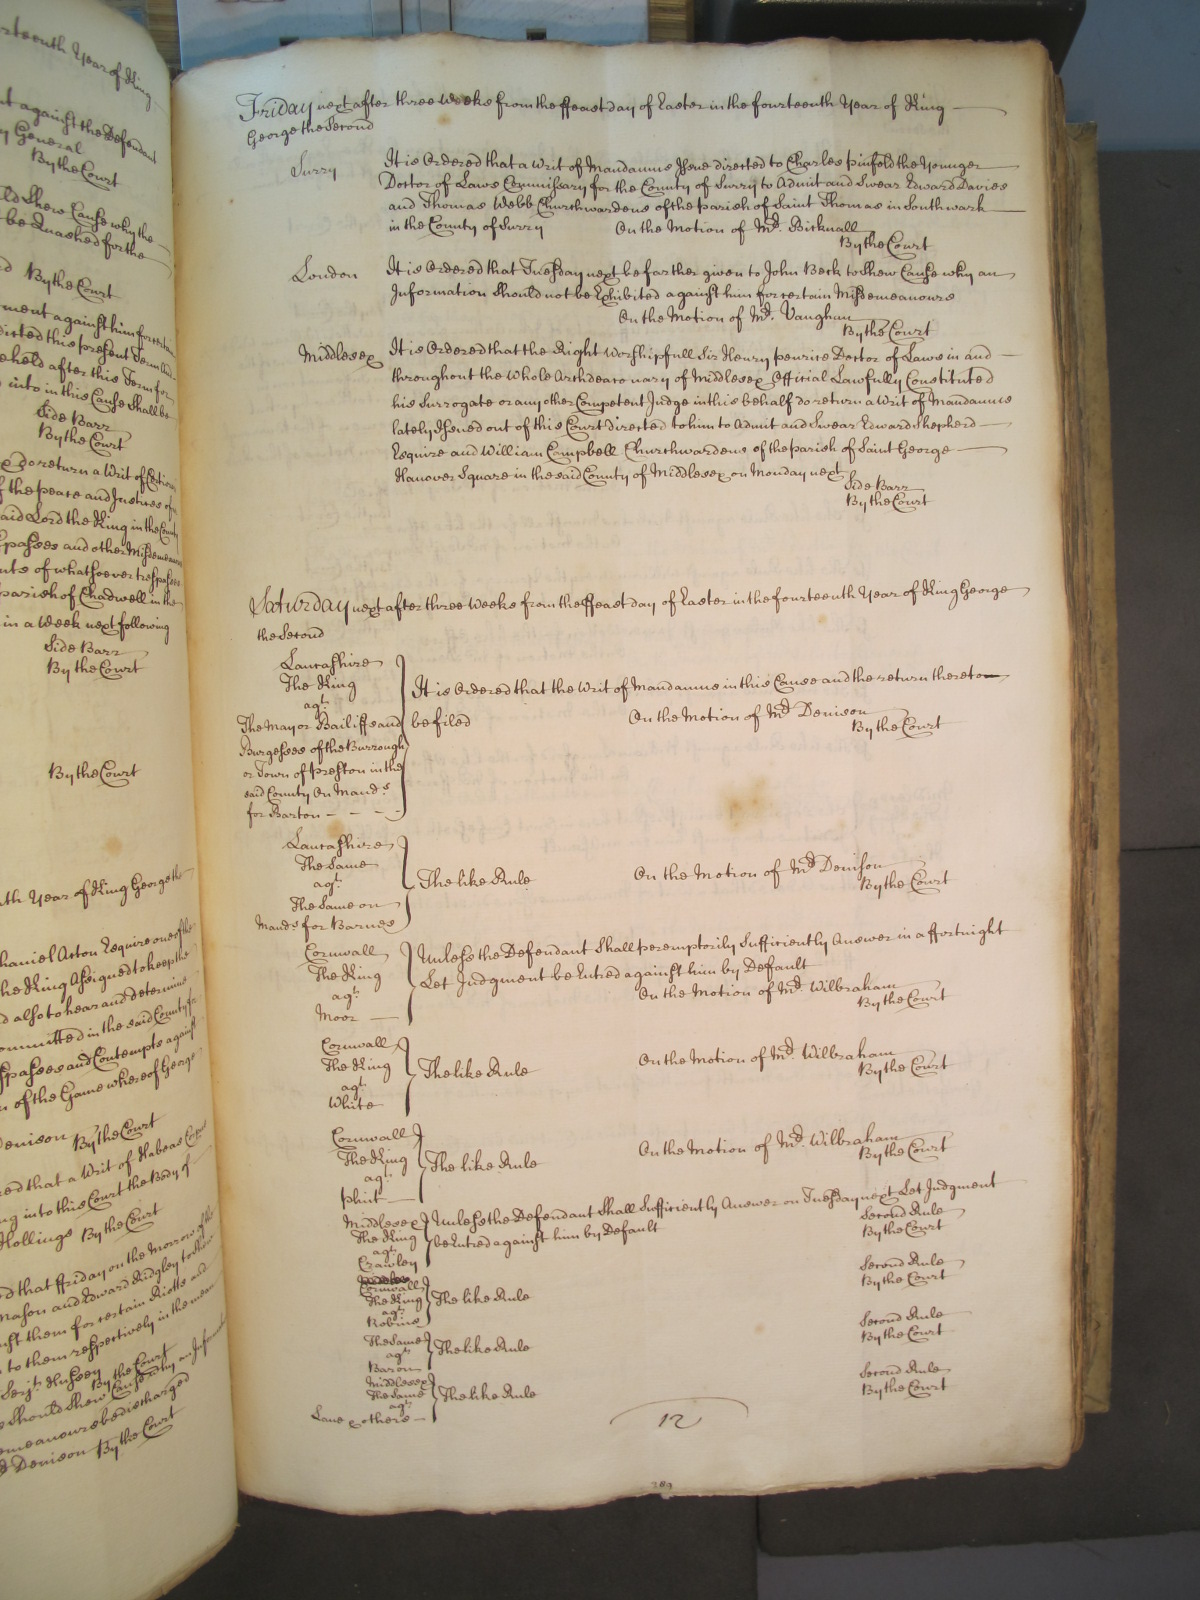 rteenth Year of King
nt against the Defendant
y General
By the Court
ld Shew Cause why the
be Quashed for the
By the Court
ment against him for certain
directed this present Term And
eheld after this Term for
into in this Cause Shall be
Side Barr
By the Court
do return a Writ of
f the peace and Justices of
aid Lord the King in the County
Spasses and other Misdemeanors
nts of whatsoever trespasses
parish of Chadwell in the
in a Week next following
Side Barr
By the Court
By the Court
nth Year of King George the
haniel Acton Esquire one of the
the King Assigned to keep the
d also to hear and determine
ommitted in the said County for
spasses and Contempts against
n of the Game whereof George
Denison By the Court
red that a Writ of Habeas Corpus
ng into this Court the Body of
Hollings By the Court
ed that ffriday on the Morrow of the
Mason and Edward Ridgley to Shew
inst them for certain Riotts and
to them respectively in the mean
Serjt. Hussey By the Court
Should Shew Cause why an Informat
emeanours be discharged
Denison By the Court
Friday next after three Weeks from the ffeast day of Easter in the fourteenth Year of King
George the Second
Surry
It is Ordered that a Writ of Mandamus Issue directed to Charles pinfold the Younger
Doctor of Laws Commissary for the County of Surry to Admit and Swear Edward Davies
and Thomas Webb Churchwardens of the parish of Saint Thomas in Southwark
in the County of Surry On the Motion of Mr. Bicknall
By the Court
London
It is Ordered that Tuesday next be farther given to John Beck to Shew Cause why an
Information Should not be Exhibited against him for certain Misdemeanours
On the Motion of Mr. Vaughan
By the Court
Middlesex
It is Ordered that the Right Worshipfull Sir Henry penrice Doctor of Laws in and
throughout the Whole Archdeaconary of Middlesex Official Lawfully Constituted
his Surrogate or any other Competent Judge in this behalf do return a Writ of Mandamus
lately Issued out of this Court directed to him to Admit and Swear Edward Shepherd
Esquire and William Campbell Churchwardens of the parish of Saint George
Hanover Square in the said County of Middlesex on Monday next
Side Barr
By the Court
Saturday next after three Weeks from the ffeast day of Easter in the fourteenth Year of King George
the Second
Lancashire
The King
agt.
The Mayor Bailiffs and
Burgesses of the Burrough
or Town of preston in the
said County On Mands
for Barton
It is Ordered that the Writ of Mandamus in this Cause and the return thereto
be filed On the Motion of Mr. Denison
By the Court
Lancashire
The Same
agt.
The Same on
Mands for Barnes
The like Rule On the Motion of Mr. Denison
By the Court
Cornwall
The King
agt.
Moor
Unless the Defendant Shall peremptorily Sufficiently Answer in a ffortnight
Let Judgment be Entred against him by Default
On the Motion of Mr. Wilbraham
By the Court
Cornwall
The King
agt.
White
The like Rule On the Motion of Mr. Wilbraham
By the Court
Cornwall
The King
agt.
phut
The like Rule On the Motion of Mr. Wilbraham
By the Court
Middlesex
The King
agt.
Crawley
Unless the Defendant Shall Sufficiently Answer on Tuesday next Let Judgment
be Entred against him by Default
Second Rule
By the Court
Cornwall
The King
agt.
Robins
The like Rule
Second Rule
By the Court
The Same
agt.
Baron
The like Rule
Second Rule
By the Court
Middlesex
The Same
agt.
Lane & others
The like Rule
Second Rule
By the Court
12